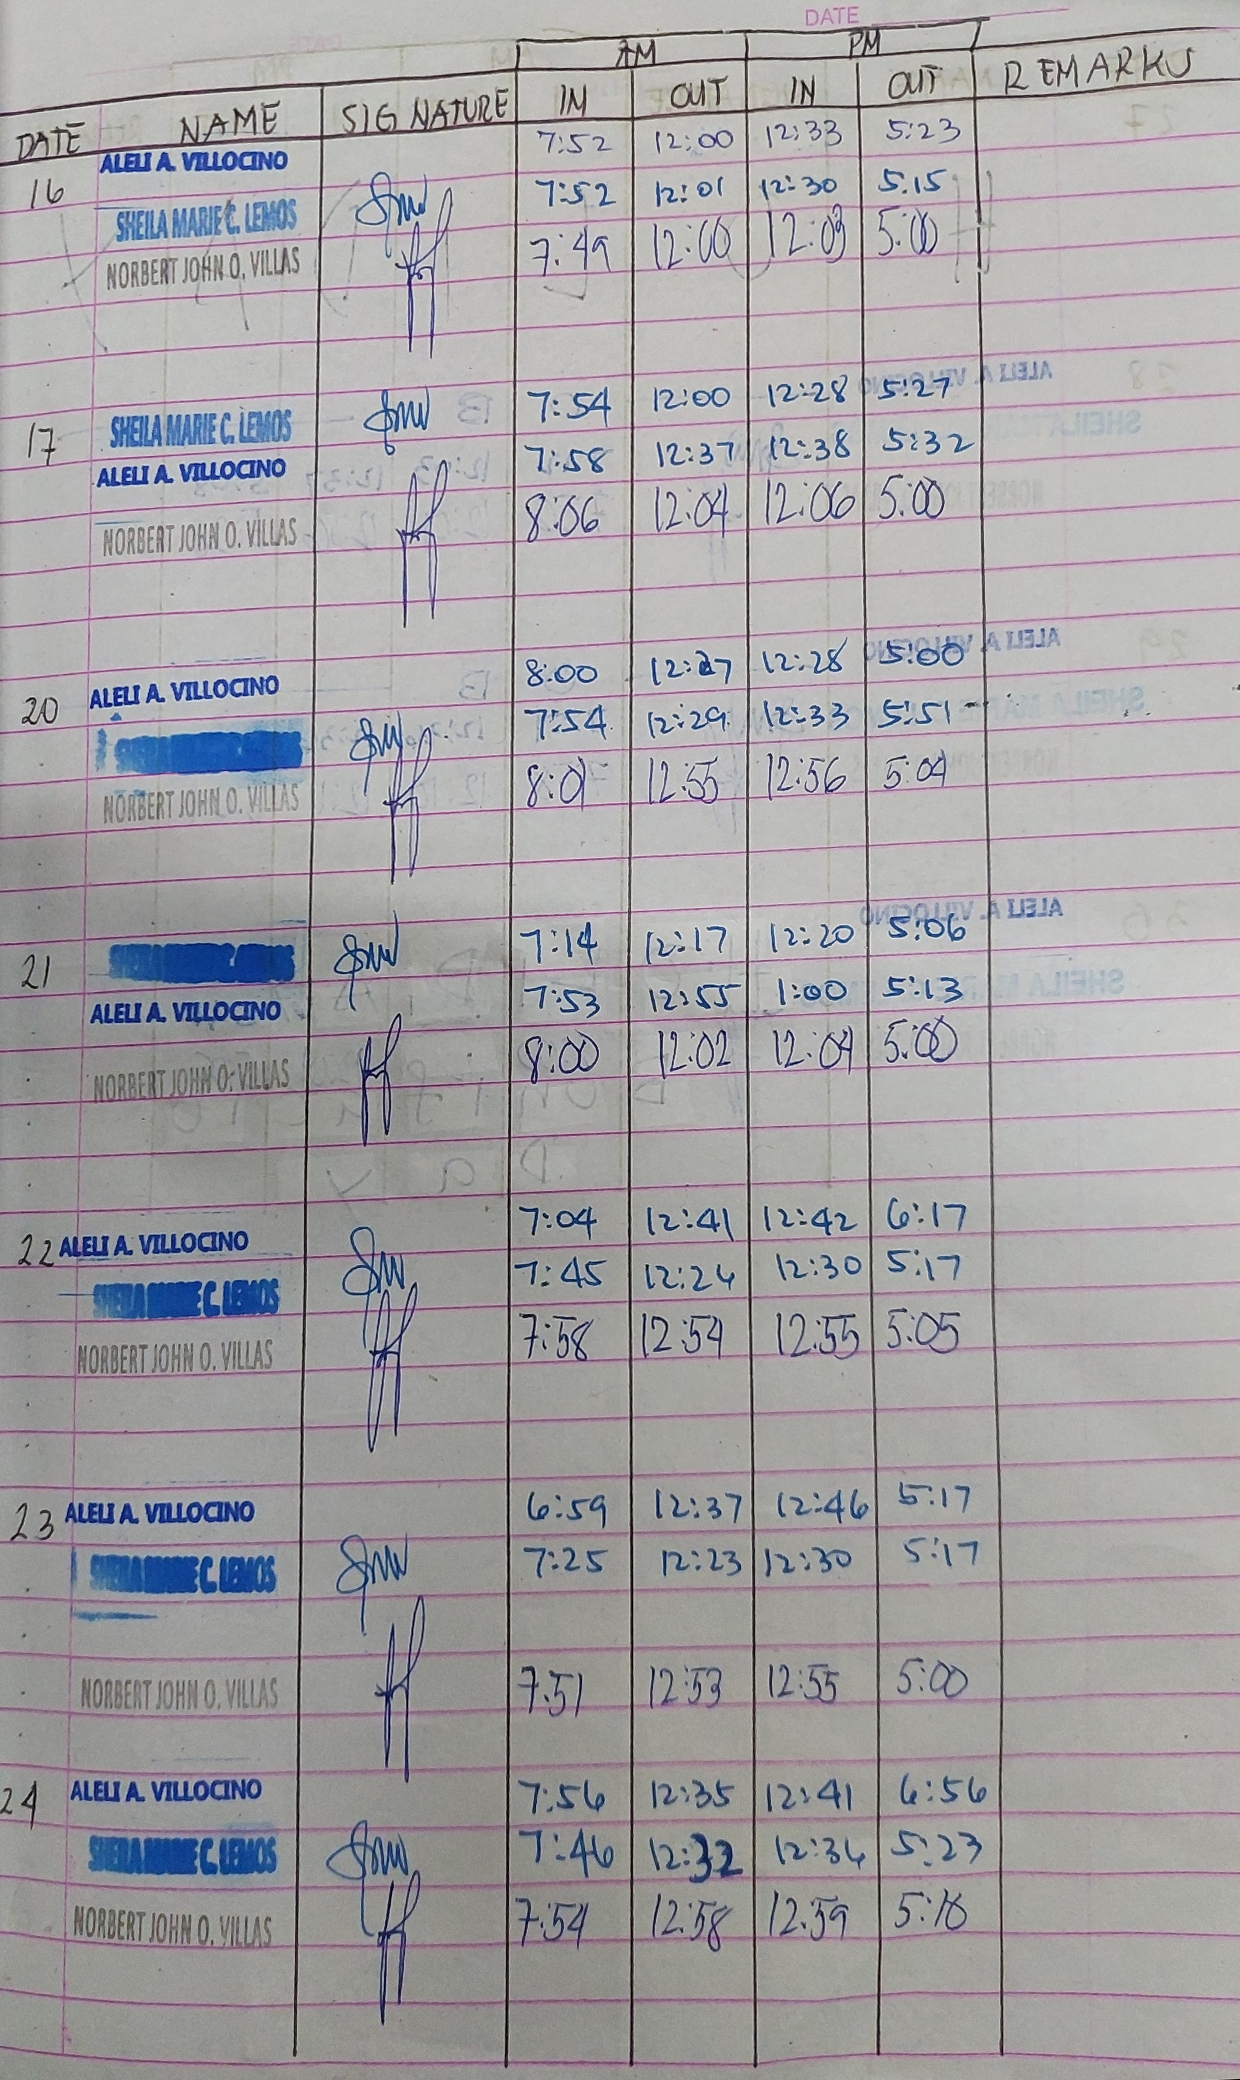 DATE
AM PM
DATE NAME SIGNATURE IN OUT IN OUT REMARKS
16 ALELI A. VILLOCINO 7:52 12:00 12:33 5:23
SHEILA MARIE C. LEMOS 7:52 12:01 12:30 5:15
NORBERT JOHN O. VILLAS 7:49 12:00 12:03 5:00
17 SHEILA MARIE C. LEMOS 7:54 12:00 12:28 5:27
ALELI A. VILLOCINO 7:58 12:37 12:38 5:32
NORBERT JOHN O. VILLAS 8:06 12:04 12:06 5:00
20 ALELI A. VILLOCINO 8:00 12:27 12:28 5:00
7:54 12:29 12:33 5:51
NORBERT JOHN O. VILLAS 8:01 12:55 12:56 5:04
21 7:14 12:17 12:20 5:06
ALELI A. VILLOCINO 7:53 12:55 1:00 5:13
NORBERT JOHN O. VILLAS 8:00 12:02 12:04 5:00
22 ALELI A. VILLOCINO 7:04 12:41 12:42 6:17
SHEILA MARIE C. LEMOS 7:45 12:26 12:30 5:17
NORBERT JOHN O. VILLAS 7:58 12:54 12:55 5:05
23 ALELI A. VILLOCINO 6:59 12:37 12:46 5:17
SHEILA MARIE C. LEMOS 7:25 12:23 12:30 5:17
NORBERT JOHN O. VILLAS 7:51 12:53 12:55 5:00
24 ALELI A. VILLOCINO 7:56 12:35 12:41 6:56
SHEILA MARIE C. LEMOS 7:46 12:32 12:36 5:23
NORBERT JOHN O. VILLAS 7:54 12:58 12:59